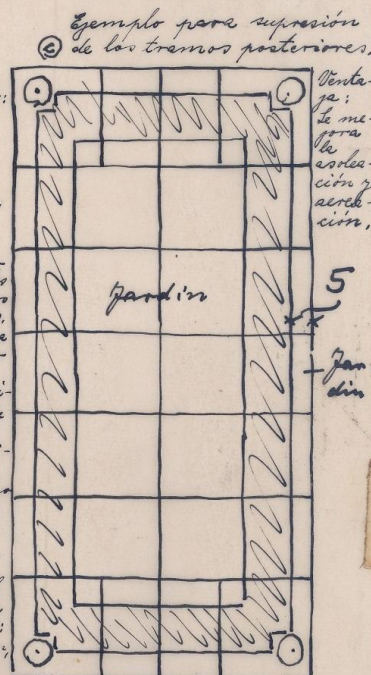 Ejemplo para supresión
ⓒ de los tramos posteriores,
Venta-
ja:
Se me-
jora
la
asolea-
ción y
aerea-
ción,
Jardín
5
Jar
din